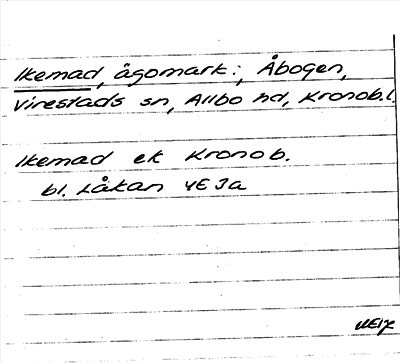 Ikemad, ägomark:, Åbogen,
Virestads sn, Allbo hd, Kronob.l.
Ikemad ek Kronob.
bl. Låkan 4E3a